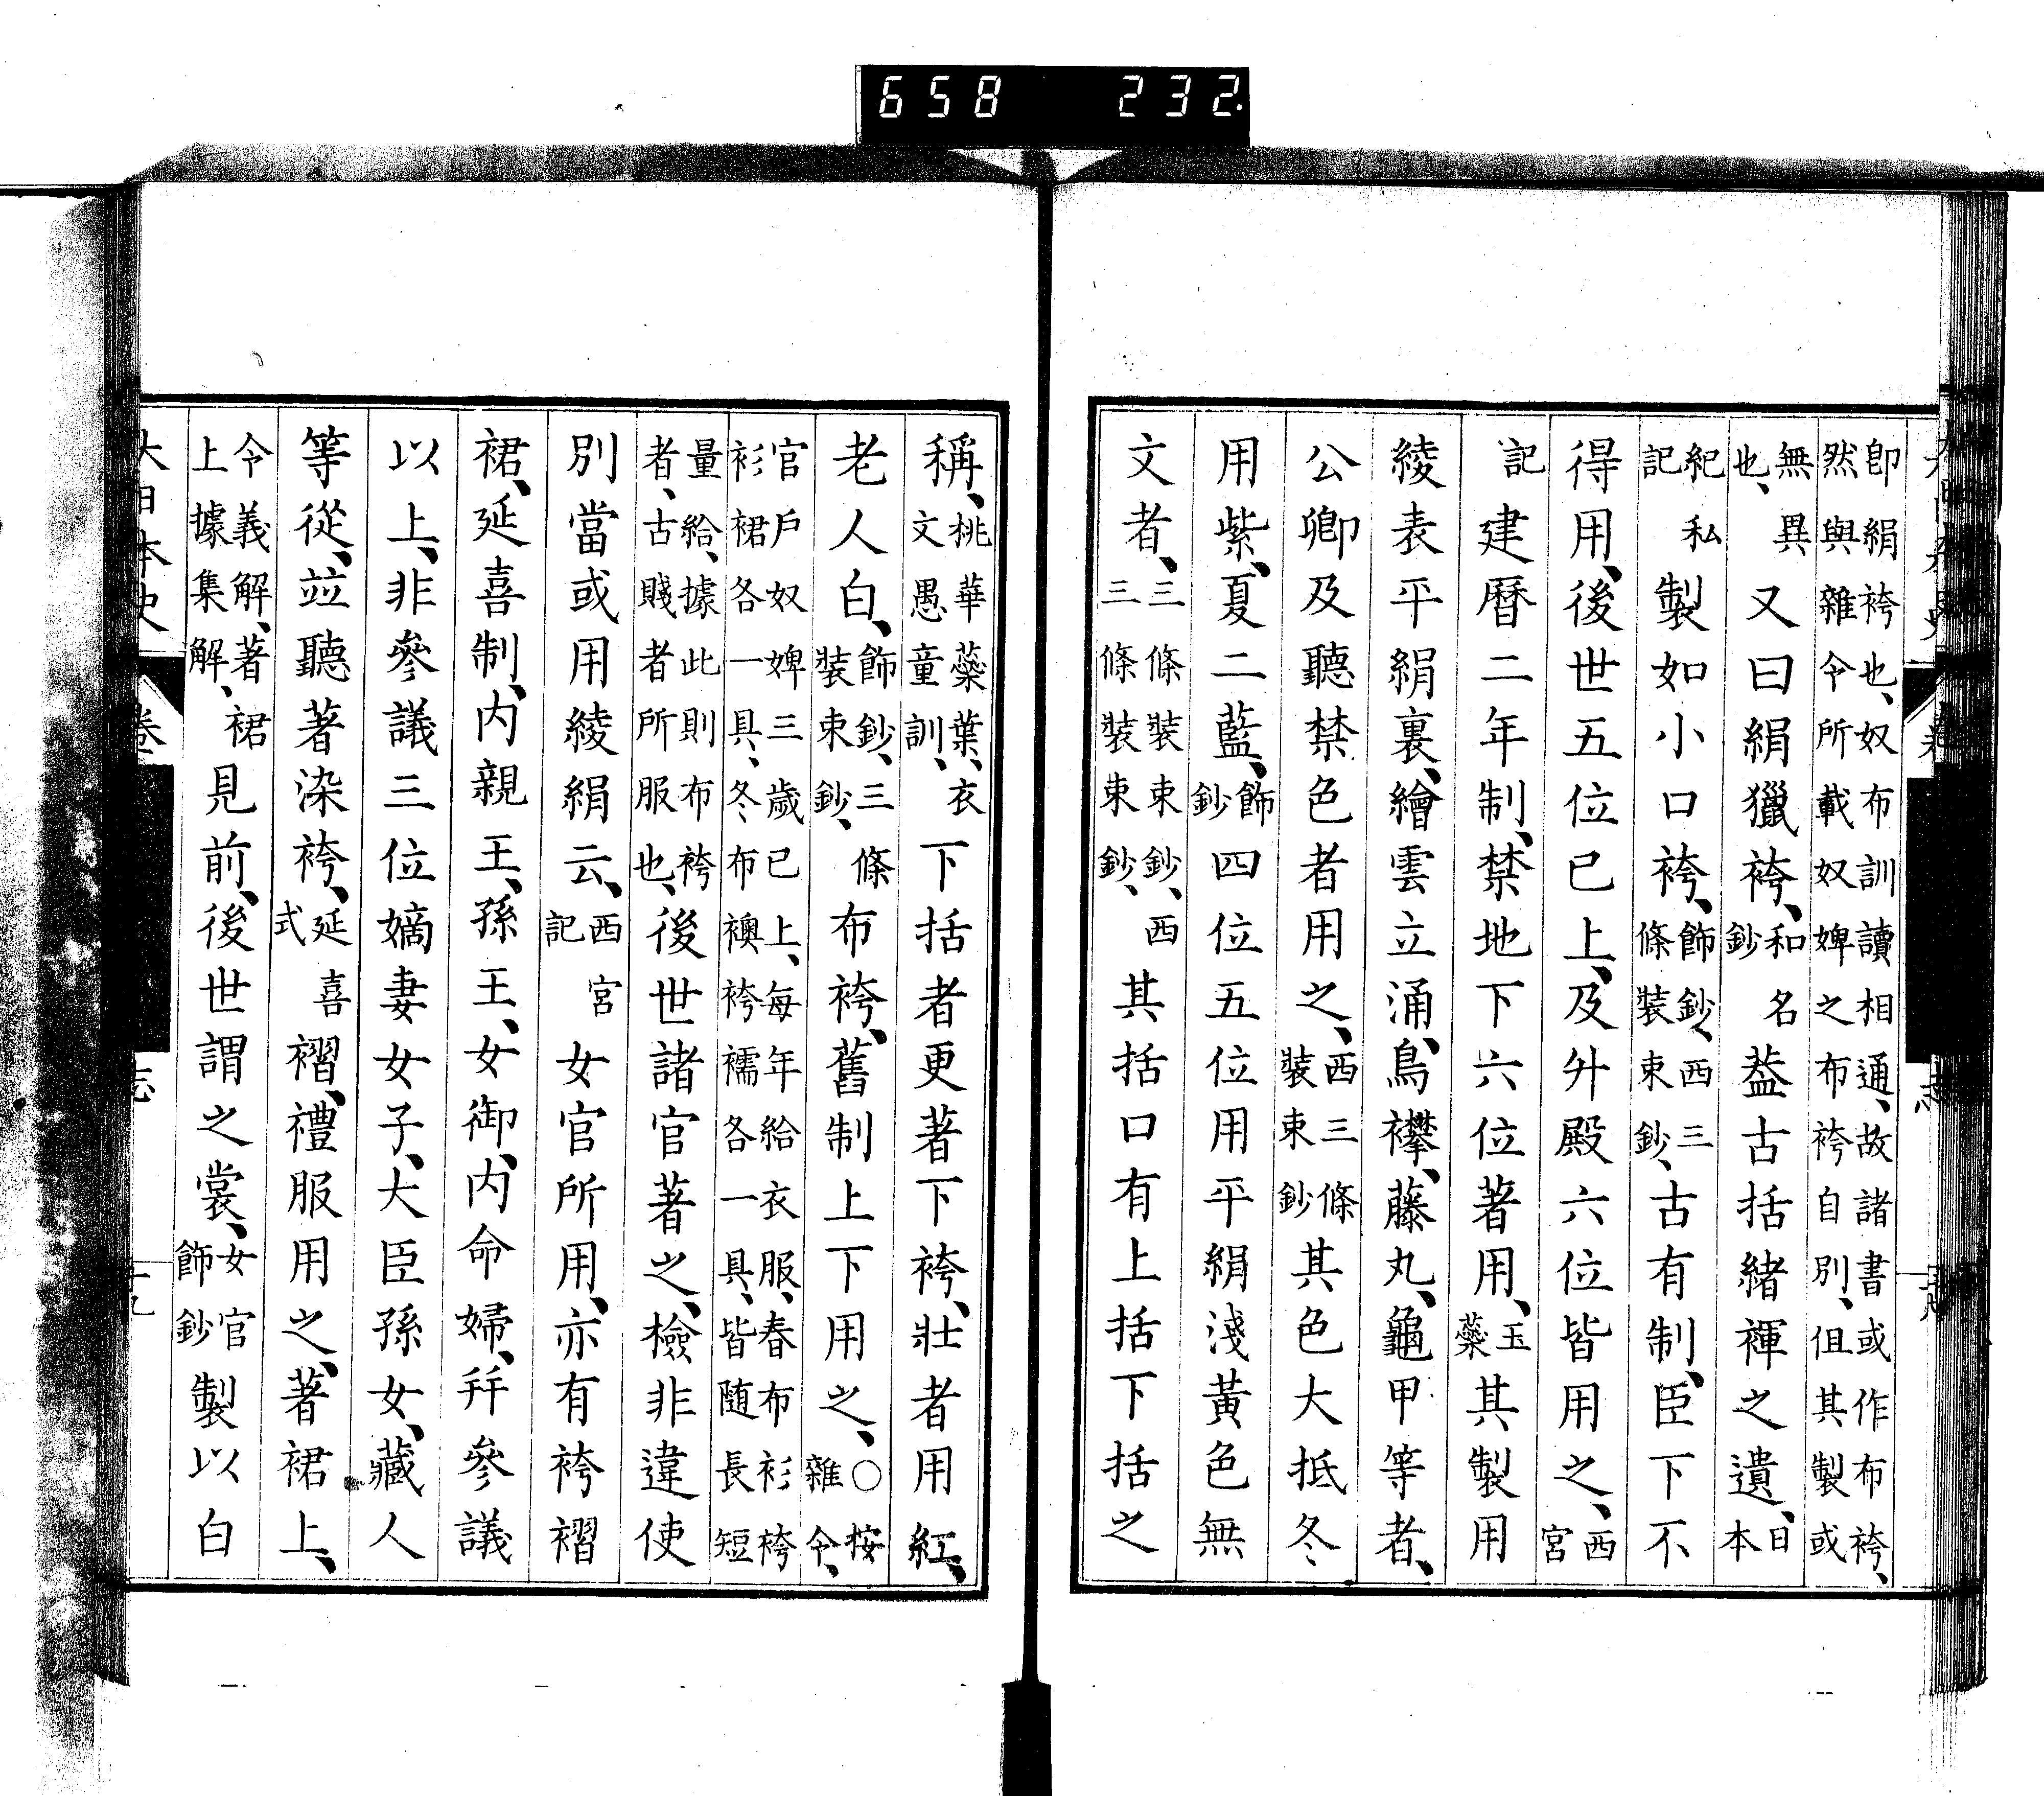 卽絹袴也、奴布訓讀相通、故諸書或作布袴、
然與雜令所載奴婢之布袴自別、但其製或
無異也、又曰絹獵袴、和名鈔蓋古括緒褌之遺、日本
紀私記製如小口袴、飾鈔、西三條裝束鈔、古有制、臣下不
得用、後世五位已上、及外殿六位皆用之、西宮
記建曆二年制、禁地下六位著用、玉蘂其製用
綾表平絹裏、繪雲立涌、鳥襷、藤丸、龜甲等者、
公卿及聽禁色者用之、西三條裝束鈔其色大抵冬
用紫、夏二藍、飾鈔四位五位用平絹淺黃色無
文者、三條裝束鈔、西三條裝束鈔、其括口有上括下括之
稱、桃華蘂葉、衣文愚童訓、下括者更著下袴、壯者用紅、
老人白、飾鈔、三條裝束鈔、布袴、舊制上下用之、○按雜令、
官戶奴婢三歲已上、每年給衣服、春布衫袴
衫裙各一具、冬布襖袴襦各一具、皆随長短
量給、據此則布袴者、古賤者所服也、後世諸官著之、檢非違使
別當或用綾絹云、西宮記女官所用、亦有袴褶
裙、延喜制、內親王、孫王、女御、內命婦、幷參議
以上、非參議三位嫡妻女子、大臣孫女、藏人
等從、竝聽著染袴、延喜式褶、禮服用之、著裙上、
令義解、著裙上據集解、見前、後世謂之裳、女官飾鈔製以白
大日本史 卷 志